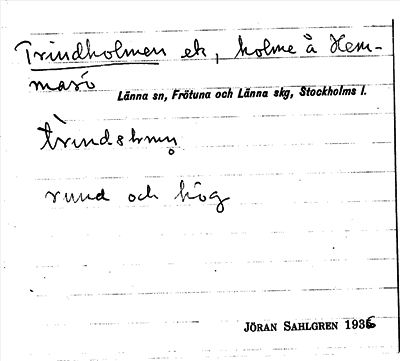 Trindholmen ek, holme å Hem-
marö
Länna sn, Frötuna och Länna skg, Stockholms l.
rund och hög
JÖRAN SAHLGREN 1936